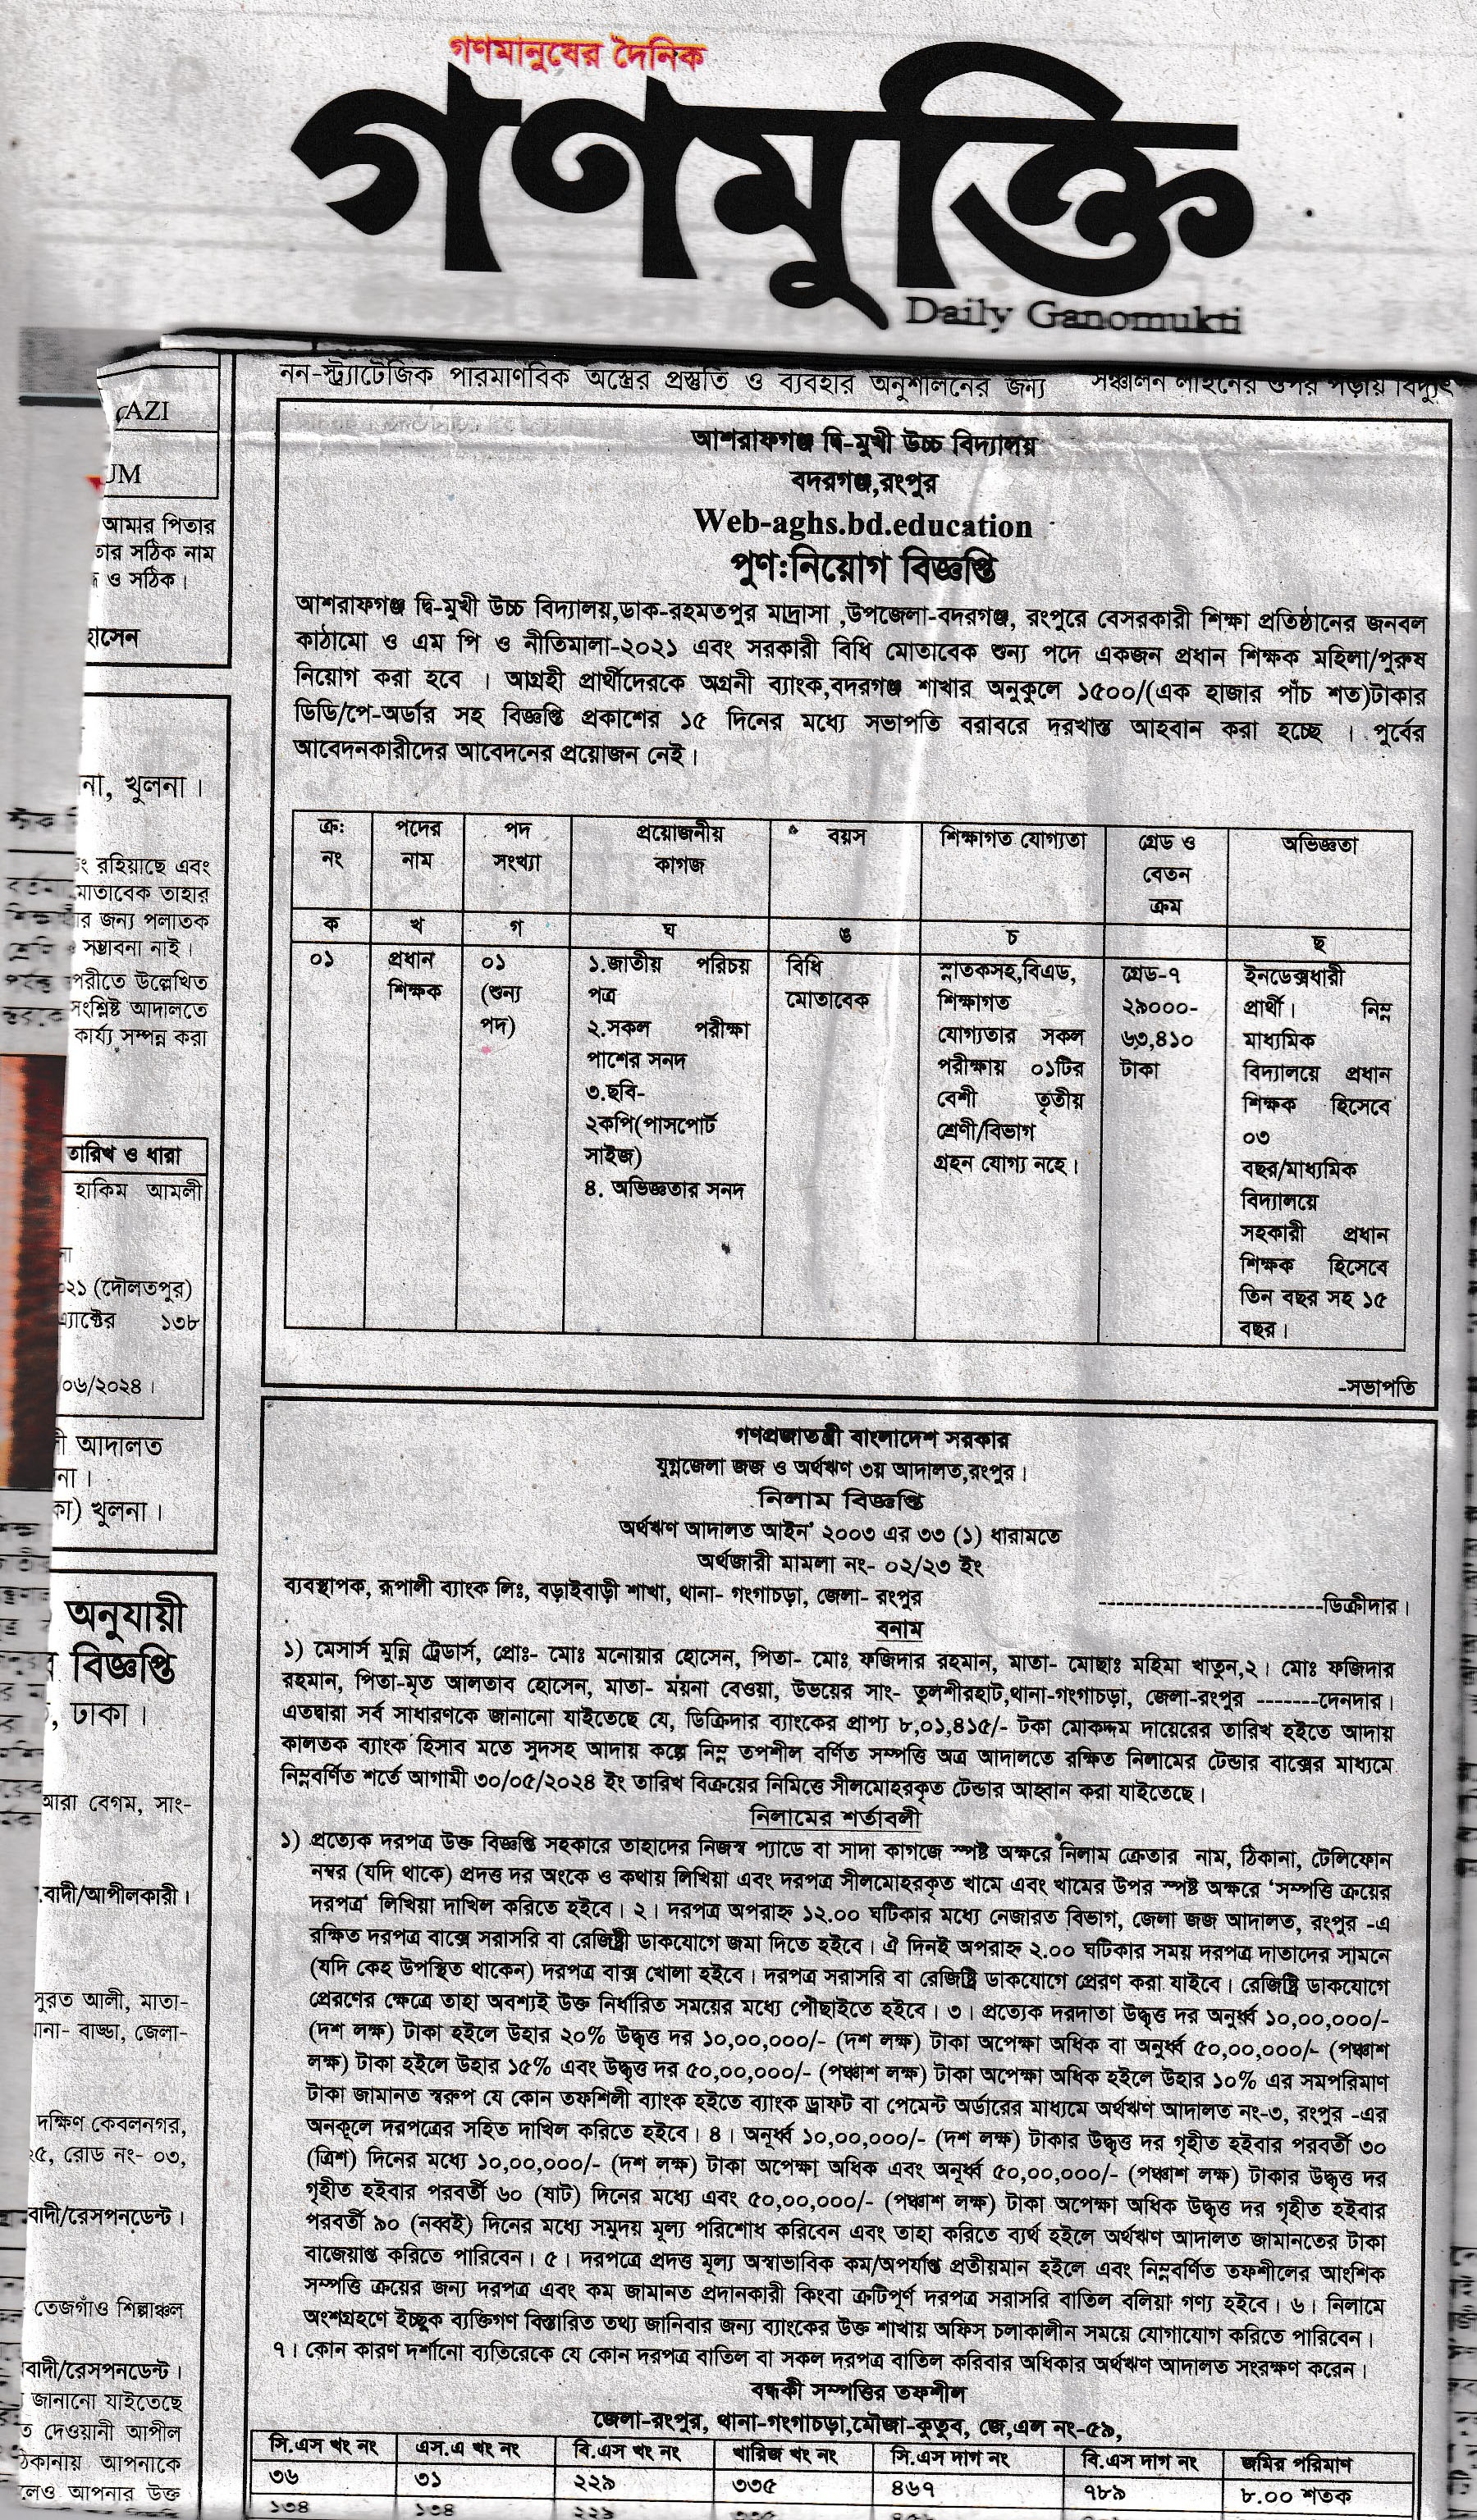 গণমানুষের দৈনিক
গণমুক্তি
Daily Ganomukti
নন-স্ট্র্যাটেজিক পারমাণবিক অস্ত্রের প্রস্তুতি ও ব্যবহার অনুশীলনের জন্য
সঞ্চালন লাইনের ওপর পড়ায় বিদ্যুৎ
আশরাফগঞ্জ দ্বি-মুখী উচ্চ বিদ্যালয়
বদরগঞ্জ,রংপুর
Web-aghs.bd.education
পুণ:নিয়োগ বিজ্ঞপ্তি
আশরাফগঞ্জ দ্বি-মুখী উচ্চ বিদ্যালয়,ডাক-রহমতপুর মাদ্রাসা ,উপজেলা-বদরগঞ্জ, রংপুরে বেসরকারী শিক্ষা প্রতিষ্ঠানের জনবল
কাঠামো ও এম পি ও নীতিমালা-২০২১ এবং সরকারী বিধি মোতাবেক শুন্য পদে একজন প্রধান শিক্ষক মহিলা/পুরুষ
নিয়োগ করা হবে । আগ্রহী প্রার্থীদেরকে অগ্রনী ব্যাংক,বদরগঞ্জ শাখার অনুকুলে ১৫০০/(এক হাজার পাঁচ শত)টাকার
ডিডি/পে-অর্ডার সহ বিজ্ঞপ্তি প্রকাশের ১৫ দিনের মধ্যে সভাপতি বরাবরে দরখাস্ত আহবান করা হচ্ছে । পুর্বের
আবেদনকারীদের আবেদনের প্রয়োজন নেই।
ক্র: নং পদের নাম পদ সংখ্যা প্রয়োজনীয় কাগজ বয়স শিক্ষাগত যোগ্যতা গ্রেড ও বেতন ক্রম অভিজ্ঞতা
ক খ গ ঘ ঙ চ ছ
০১
প্রধান
শিক্ষক
০১
(শুন্য
পদ)
১.জাতীয় পরিচয়
পত্র
২.সকল পরীক্ষা
পাশের সনদ
৩.ছবি-
২কপি(পাসপোর্ট
সাইজ)
৪. অভিজ্ঞতার সনদ
বিধি
মোতাবেক
স্নাতকসহ,বিএড,
শিক্ষাগত
যোগ্যতার সকল
পরীক্ষায় ০১টির
বেশী তৃতীয়
শ্রেণী/বিভাগ
গ্রহন যোগ্য নহে।
গ্রেড-৭
২৯০০০-
৬৩,৪১০
টাকা
ইনডেক্সধারী
প্রার্থী। নিম্ন
মাধ্যমিক
বিদ্যালয়ে প্রধান
শিক্ষক হিসেবে
০৩
বছর/মাধ্যমিক
বিদ্যালয়ে
সহকারী প্রধান
শিক্ষক হিসেবে
তিন বছর সহ ১৫
বছর।
-সভাপতি
গণপ্রজাতন্ত্রী বাংলাদেশ সরকার
যুগ্মজেলা জজ ও অর্থঋণ ৩য় আদালত,রংপুর।
নিলাম বিজ্ঞপ্তি
অর্থঋণ আদালত আইন' ২০০৩ এর ৩৩ (১) ধারামতে
অর্থজারী মামলা নং- ০২/২৩ ইং
ব্যবস্থাপক, রূপালী ব্যাংক লিঃ, বড়াইবাড়ী শাখা, থানা- গংগাচড়া, জেলা- রংপুর -------------------------ডিক্রীদার।
বনাম
১) মেসার্স মুন্নি ট্রেডার্স, প্রোঃ- মোঃ মনোয়ার হোসেন, পিতা- মোঃ ফজিদার রহমান, মাতা- মোছাঃ মহিমা খাতুন,২। মোঃ ফজিদার
রহমান, পিতা-মৃত আলতাব হোসেন, মাতা- ময়না বেওয়া, উভয়ের সাং- তুলশীরহাট,থানা-গংগাচড়া, জেলা-রংপুর -------দেনদার।
এতদ্বারা সর্ব সাধারণকে জানানো যাইতেছে যে, ডিক্রিদার ব্যাংকের প্রাপ্য ৮,০১,৪১৫/- টকা মোকদ্দম দায়েরের তারিখ হইতে আদায়
কালতক ব্যাংক হিসাব মতে সুদসহ আদায় কল্পে নিম্ন তপশীল বর্ণিত সম্পত্তি অত্র আদালতে রক্ষিত নিলামের টেন্ডার বাক্সের মাধ্যমে
নিম্নবর্ণিত শর্তে আগামী ৩০/০৫/২০২৪ ইং তারিখ বিক্রয়ের নিমিত্তে সীলমোহরকৃত টেন্ডার আহ্বান করা যাইতেছে।
নিলামের শর্তাবলী
১) প্রত্যেক দরপত্র উক্ত বিজ্ঞপ্তি সহকারে তাহাদের নিজস্ব প্যাডে বা সাদা কাগজে স্পষ্ট অক্ষরে নিলাম ক্রেতার নাম, ঠিকানা, টেলিফোন
নম্বর (যদি থাকে) প্রদত্ত দর অংকে ও কথায় লিখিয়া এবং দরপত্র সীলমোহরকৃত খামে এবং খামের উপর স্পষ্ট অক্ষরে 'সম্পত্তি ক্রয়ের
দরপত্র' লিখিয়া দাখিল করিতে হইবে। ২। দরপত্র অপরাহ্ন ১২.০০ ঘটিকার মধ্যে নেজারত বিভাগ, জেলা জজ আদালত, রংপুর -এ
রক্ষিত দরপত্র বাক্সে সরাসরি বা রেজিষ্ট্রী ডাকযোগে জমা দিতে হইবে। ঐ দিনই অপরাহ্ন ২.০০ ঘটিকার সময় দরপত্র দাতাদের সামনে
(যদি কেহ উপস্থিত থাকেন) দরপত্র বাক্স খোলা হইবে। দরপত্র সরাসরি বা রেজিষ্ট্রি ডাকযোগে প্রেরণ করা যাইবে। রেজিষ্ট্রি ডাকযোগে
প্রেরণের ক্ষেত্রে তাহা অবশ্যই উক্ত নির্ধারিত সময়ের মধ্যে পৌঁছাইতে হইবে। ৩। প্রত্যেক দরদাতা উদ্ধৃত্ত দর অনুর্ধ্ব ১০,০০,০০০/-
(দশ লক্ষ) টাকা হইলে উহার ২০% উদ্ধৃত্ত দর ১০,০০,০০০/- (দশ লক্ষ) টাকা অপেক্ষা অধিক বা অনুর্ধ্ব ৫০,০০,০০০/- (পঞ্চাশ
লক্ষ) টাকা হইলে উহার ১৫% এবং উদ্ধৃত্ত দর ৫০,০০,০০০/- (পঞ্চাশ লক্ষ) টাকা অপেক্ষা অধিক হইলে উহার ১০% এর সমপরিমাণ
টাকা জামানত স্বরুপ যে কোন তফশিলী ব্যাংক হইতে ব্যাংক ড্রাফট বা পেমেন্ট অর্ডারের মাধ্যমে অর্থঋণ আদালত নং-৩, রংপুর -এর
অনকূলে দরপত্রের সহিত দাখিল করিতে হইবে। ৪। অনূর্ধ্ব ১০,০০,০০০/- (দশ লক্ষ) টাকার উদ্ধৃত্ত দর গৃহীত হইবার পরবর্তী ৩০
(ত্রিশ) দিনের মধ্যে ১০,০০,০০০/- (দশ লক্ষ) টাকা অপেক্ষা অধিক এবং অনূর্ধ্ব ৫০,০০,০০০/- (পঞ্চাশ লক্ষ) টাকার উদ্ধৃত্ত দর
গৃহীত হইবার পরবর্তী ৬০ (ষাট) দিনের মধ্যে এবং ৫০,০০,০০০/- (পঞ্চাশ লক্ষ) টাকা অপেক্ষা অধিক উদ্ধৃত্ত দর গৃহীত হইবার
পরবর্তী ৯০ (নব্বই) দিনের মধ্যে সমুদয় মূল্য পরিশোধ করিবেন এবং তাহা করিতে ব্যর্থ হইলে অর্থঋণ আদালত জামানতের টাকা
বাজেয়াপ্ত করিতে পারিবেন। ৫। দরপত্রে প্রদত্ত মূল্য অস্বাভাবিক কম/অপর্যাপ্ত প্রতীয়মান হইলে এবং নিম্নবর্ণিত তফশীলের আংশিক
সম্পত্তি ক্রয়ের জন্য দরপত্র এবং কম জামানত প্রদানকারী কিংবা ত্রুটিপূর্ণ দরপত্র সরাসরি বাতিল বলিয়া গণ্য হইবে। ৬। নিলামে
অংশগ্রহণে ইচ্ছুক ব্যক্তিগণ বিস্তারিত তথ্য জানিবার জন্য ব্যাংকের উক্ত শাখায় অফিস চলাকালীন সময়ে যোগাযোগ করিতে পারিবেন।
৭। কোন কারণ দর্শানো ব্যতিরেকে যে কোন দরপত্র বাতিল বা সকল দরপত্র বাতিল করিবার অধিকার অর্থঋণ আদালত সংরক্ষণ করেন।
বন্ধকী সম্পত্তির তফশীল
জেলা-রংপুর, থানা-গংগাচড়া,মৌজা-কুতুব, জে,এল নং-৫৯,
সি.এস খং নং এস.এ খং নং বি.এস খং নং খারিজ খং নং সি.এস দাগ নং বি.এস দাগ নং জমির পরিমাণ
৩৬ ৩১ ২২৯ ৩৩৫ ৪৬৭ ৭৮৯ ৮.০০ শতক
১৩৪ ১৩৪ ২২৯
AZI
UM
আমার পিতার
তার সঠিক নাম
ও সঠিক।
হাসেন
না, খুলনা।
রহিয়াছে এবং
মোতাবেক তাহার
র জন্য পলাতক
সম্ভাবনা নাই।
পরীতে উল্লেখিত
সংশ্লিষ্ট আদালতে
কার্য্য সম্পন্ন করা
তারিখ ও ধারা
হাকিম আমলী
০২১ (দৌলতপুর)
এ্যাক্টের ১৩৮
/০৬/২০২৪।
আদালত
না।
কা) খুলনা।
অনুযায়ী
বিজ্ঞপ্তি
, ঢাকা।
আরা বেগম, সাং-
বাদী/আপীলকারী।
সুরত আলী, মাতা-
থানা- বাড্ডা, জেলা-
দক্ষিণ কেবলনগর,
২৫, রোড নং- ০৩,
বাদী/রেসপনডেন্ট।
তেজগাঁও শিল্পাঞ্চল
বাদী/রেসপনডেন্ট।
জানানো যাইতেছে
ত দেওয়ানী আপীল
ঠিকানায় আপনাকে
লেও আপনার উক্ত